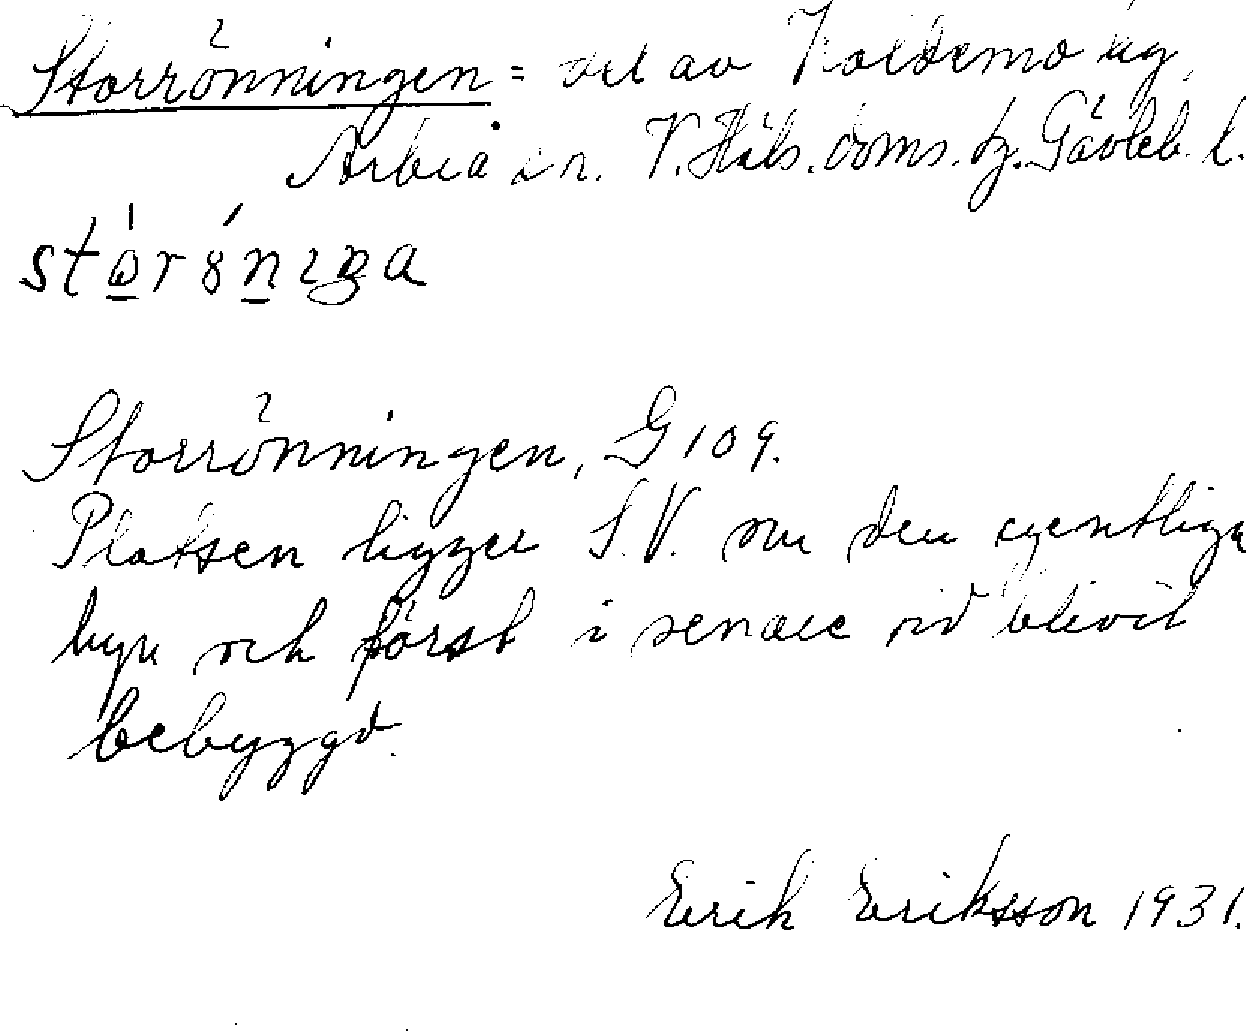 Storrönningen = del av Koldemo äg,
Arbrå sn. V. Häls. doms. fg. Gävleb. l.
Storrönningen, G 109.
Platsen ligger S.V. om den egentliga
byn och först i senare tid blivit
bebyggd.
Erik Eriksson 1931.